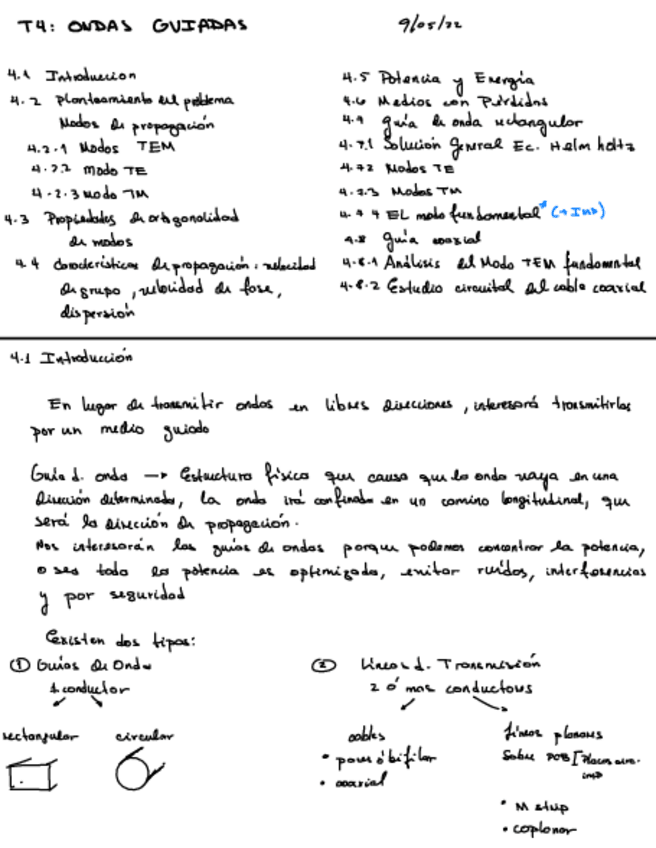 T4: ONDAS GUIADAS
9/05/22
4.1 Introducción
4.2 Planteamiento del problema
Modos de propagación
4.2.1 Modos TEM
4.2.2 modo TE
4.2.3 modo TM
4.3 Propiedades de ortogonalidad
de modos
4.4 Características de propagación: velocidad
de grupo, velocidad de fase,
dispersión
4.5 Potencia y Energía
4.6 Medios con Pérdidas
4.7 guía de onda rectangular
4.7.1 Solución general Ec. Helmholtz
4.7.2 Modos TE
4.7.3 Modos TM
4.7.4 EL modo fundamental* (+ Imp)
4.8 guía coaxial
4.8.1 Análisis del Modo TEM fundamental
4.8.2 Estudio circuital del cable coaxial
4.1 Introducción
En lugar de transmitir ondas en libres direcciones, interesará transmitirlas
por un medio guiado
Guía d. onda → Estructura física que causa que la onda vaya en una
dirección determinada, la onda irá confinada en un camino longitudinal, que
será la dirección de propagación.
Nos interesarán las guías de ondas porque podemos concentrar la potencia,
o sea toda la potencia es optimizada, evitar ruidos, interferencias
y por seguridad
Existen dos tipos:
① Guías de Onda
1 conductor
rectangular circular
② Líneas d. Transmisión
2 ó mas conductores
cables
• pares ó bifilar
• coaxial
líneas planares
Sobre PCB [Placas
• M strip
• coplanar